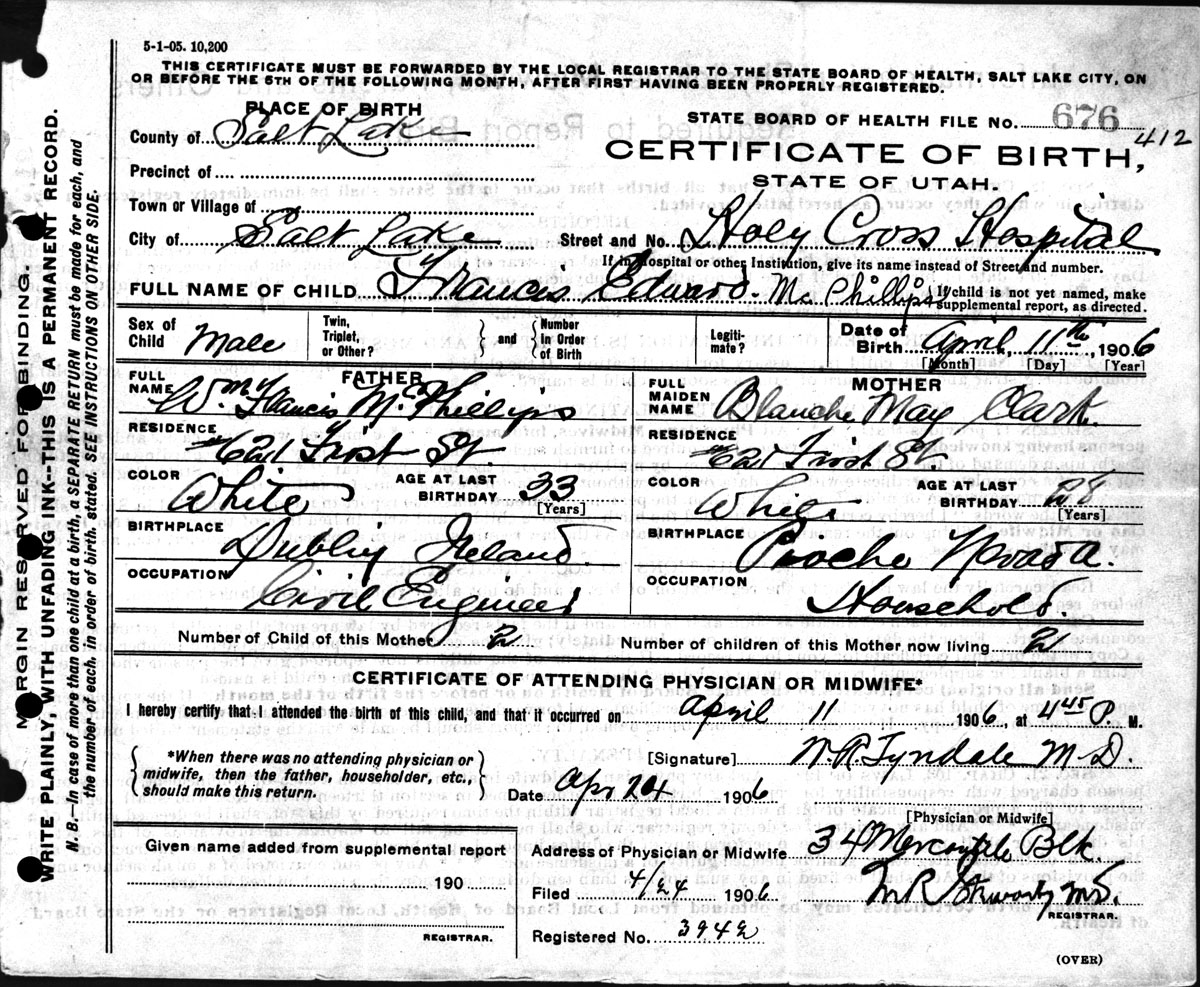 5-1-05. 10,200
THIS CERTIFICATE MUST BE FORWARDED BY THE LOCAL REGISTRAR TO THE STATE BOARD OF HEALTH, SALT LAKE CITY, ON
OR BEFORE THE 5TH OF THE FOLLOWING MONTH, AFTER FIRST HAVING BEEN PROPERLY REGISTERED.
PLACE OF BIRTH
County of Salt Lake
Precinct of
Town or Village of
City of Salt Lake
STATE BOARD OF HEALTH FILE No. 676
412
CERTIFICATE OF BIRTH,
STATE OF UTAH.
Street and No. Holy Cross Hospital
If in Hospital or other Institution, give its name instead of Street and number.
FULL NAME OF CHILD Francis Edward McPhillips { If child is not yet named, make supplemental report, as directed.
Sex of Child Male
Twin, Triplet, or Other? } and { Number in Order of Birth
Legitimate?
Date of Birth April, 11th, 1906
[Month] [Day] [Year]
FATHER
FULL NAME Wm Francis McPhillips
RESIDENCE Frost St
COLOR White
AGE AT LAST BIRTHDAY 33
[Years]
BIRTHPLACE Dublin Ireland.
OCCUPATION Civil Engineer
MOTHER
FULL MAIDEN NAME Blanche May Clark.
RESIDENCE Frost St.
COLOR White
AGE AT LAST BIRTHDAY 28
[Years]
BIRTHPLACE Pioche Nevada.
OCCUPATION Household.
Number of Child of this Mother 2
Number of children of this Mother now living 2
CERTIFICATE OF ATTENDING PHYSICIAN OR MIDWIFE*
I hereby certify that I attended the birth of this child, and that it occurred on April 11 1906, at 4 45 P. M.
{ *When there was no attending physician or midwife, then the father, householder, etc., should make this return. }
[Signature] N.R. Tyndale M.D.
Date Apr 24 1906
[Physician or Midwife]
Given name added from supplemental report
190
REGISTRAR.
Address of Physician or Midwife 34 Mercantile Blk.
Filed 4/24 1906 M R Stewart MD.
REGISTRAR.
Registered No. 3942
(OVER)
MARGIN RESERVED FOR BINDING.
WRITE PLAINLY, WITH UNFADING INK--THIS IS A PERMANENT RECORD.
N. B.—In case of more than one child at a birth, a SEPARATE RETURN must be made for each, and
the number of each, in order of birth, stated. SEE INSTRUCTIONS ON OTHER SIDE.